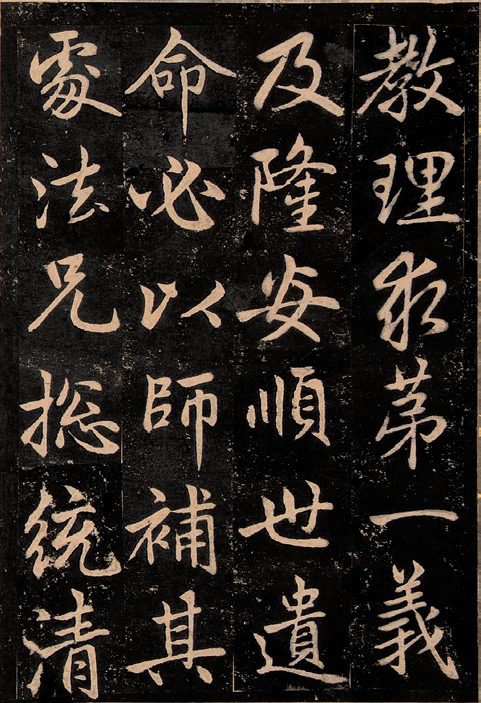 教理求苐一義
及隆安順世遺
命必以師補其
處法兄揔統清